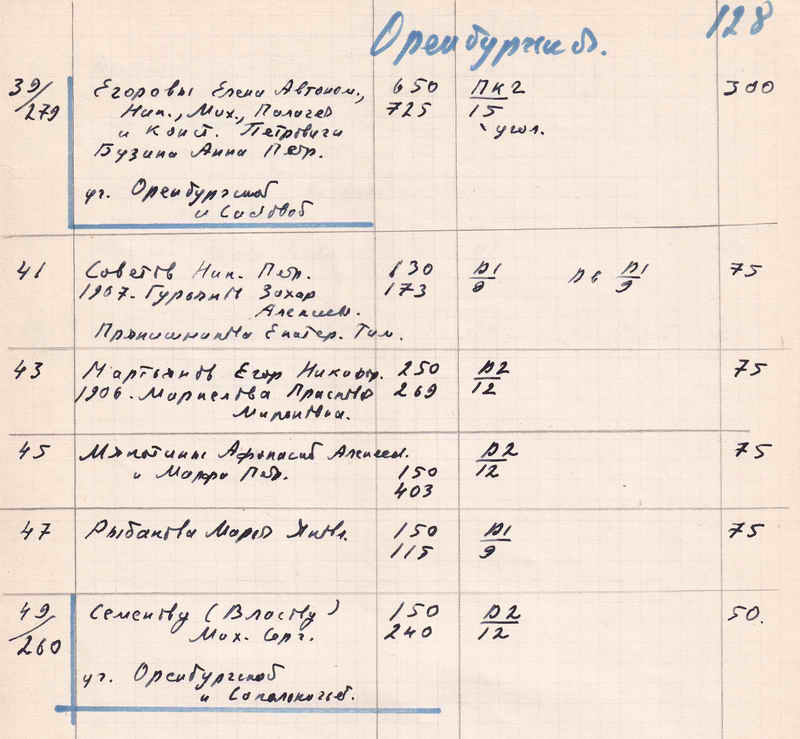 128
Оренбургская.
39/279 Егоровы Елена Автоном., 650 Пк2 300
Ник., Мих., Пелагея 725 15
и Конст. Петровичи угол.
Бузина Анна Петр.
уг. Оренбургской
и Садовой
41 Советов Ник. Петр. 130 Д1 Д1 75
1907. Гурьянов Захар 173 9 9
Алексеев.
Прянишникова Екатер. Тим.
43 Мартьянов Егор Никифор. 250 Д2 75
1906. Маркелова Прасковья 269 12
Мироновна.
45 Афанасий Алексеев. Д2 75
и Марфа Петр. 150 12
403
47 Рыбакова Мария Яковл. 150 Д1 75
115 9
49/260 Семенову (Власову) 150 Д2 50.
Мих. Серг. 240 12
уг. Оренбургской
и